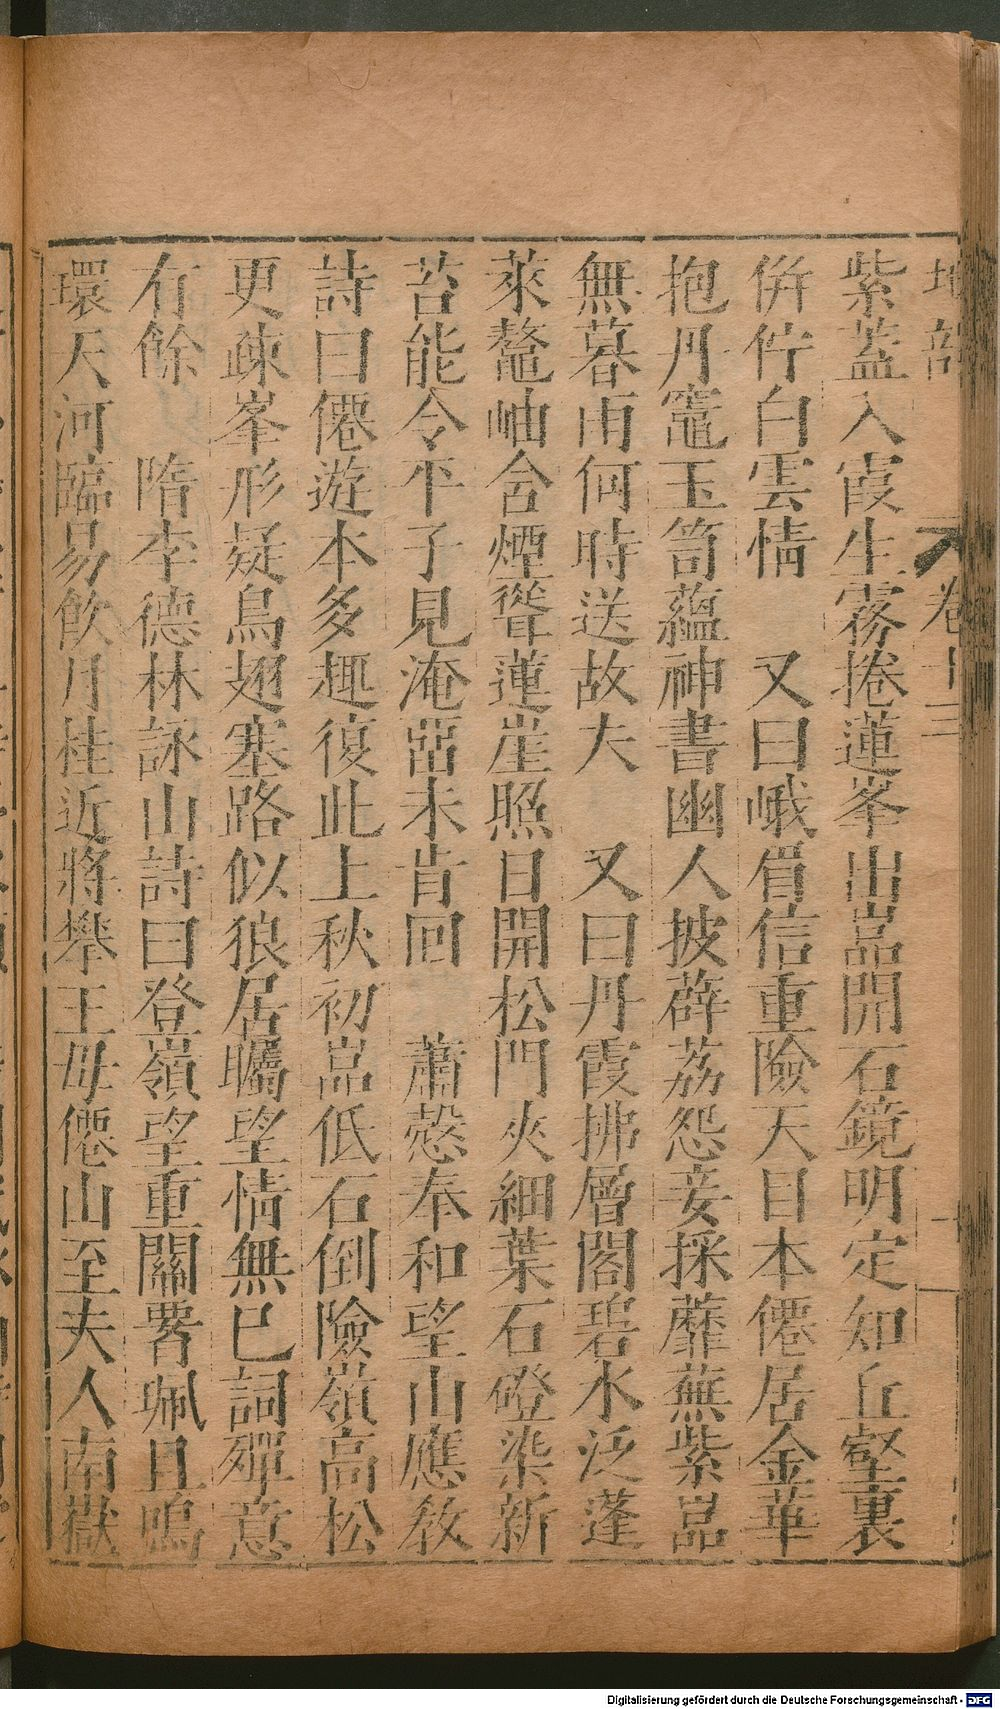 地部 卷十三
紫蓋入霞生霧捲蓮峯出嵓開石鏡明定知丘壑裏
併佇白雲情 又曰峨眉信重險天目本僊居金華
抱丹竈玉笥蘊神書幽人披薜荔怨妾採蘼蕪紫嵓
無暮雨何時送故夫 又曰丹霞拂層閣碧水泛蓬
萊鼇岫含煙聳蓮崖照日開松門夾細葉石磴染新
苔能令平子見淹畱未肯回 蕭愨奉和望山應教
詩曰僊遊本多趣復此上秋初嵓低石倒險嶺高松
更疎峯形疑鳥翅塞路似狼居矚望情無已詞殫意
有餘 隋李德林詠山詩曰登嶺望重關署珮且鳴
環天河臨易飲月桂近將攀王母僊山至夫人南嶽
Digitalisierung gefördert durch die Deutsche Forschungsgemeinschaft - DFG